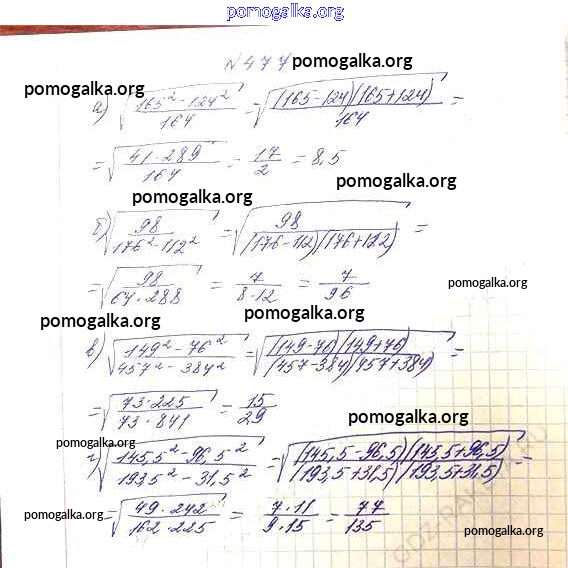 pomogalka.org
№477
pomogalka.org
pomogalka.org
а) √(165² - 124² / 164) = √((165-124)(165+124) / 164) =
pomogalka.org
= √(41·289 / 164) = 17/2 = 8,5
pomogalka.org
pomogalka.org
б) √(98 / 176² - 112²) = √(98 / (176-112)(176+112)) =
pomogalka.org
= √(98 / 64·288) = 7 / 8·12 = 7/96
pomogalka.org
pomogalka.org
pomogalka.org
в) √(149² - 76² / 457² - 384²) = √((149-76)(149+76) / (457-384)(457+384)) =
= √(73·225 / 73·841) = 15/29
pomogalka.org
г) √(145,5² - 96,5² / 193,5² - 31,5²) = √((145,5-96,5)(145,5+96,5) / (193,5+31,5)(193,5+31,5)) =
= √(49·242 / 162·225) = 7·11 / 9·15 = 77/135
pomogalka.org
pomogalka.org
pomogalka.org